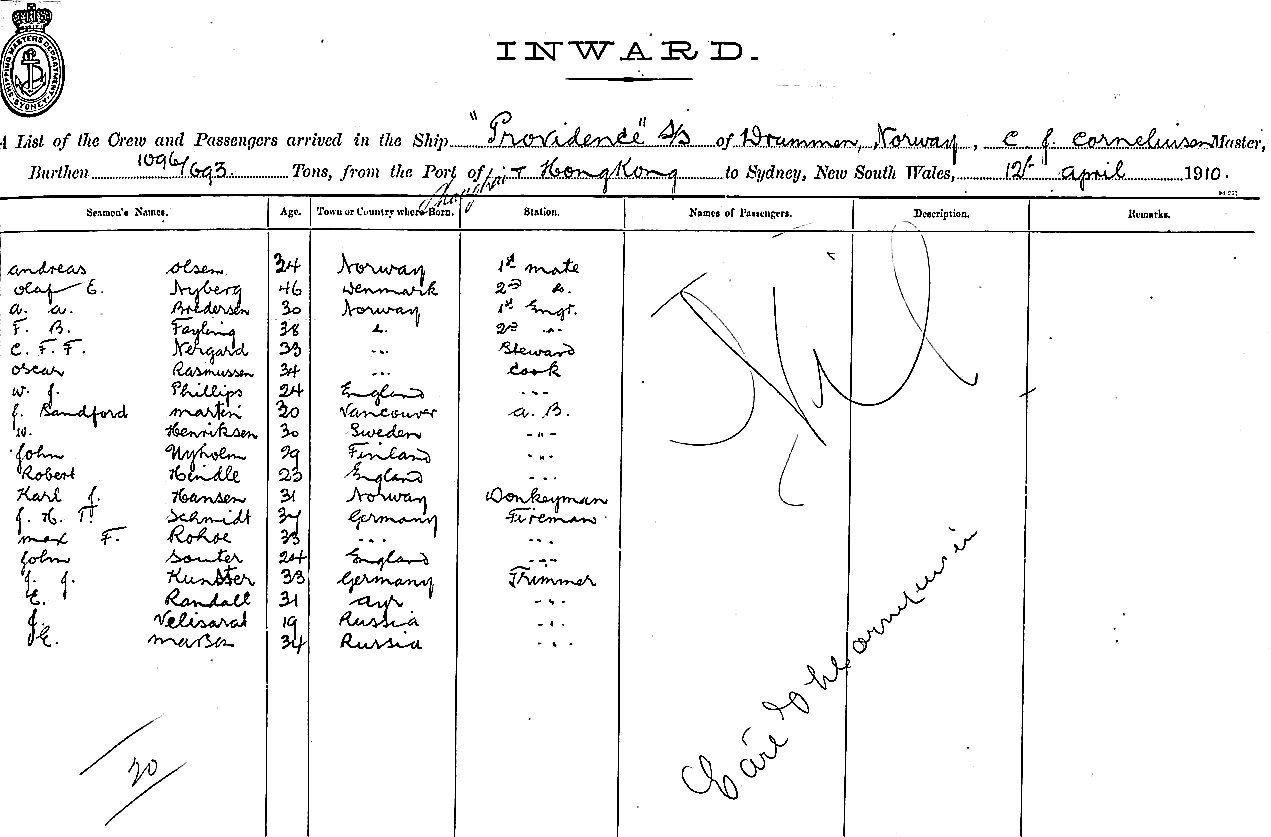 SHIPPING MASTERS DEPARTMENT SYDNEY
INWARD.
A List of the Crew and Passengers arrived in the Ship "Providence" S/S of Drammen, Norway, C J Corneliusen Master,
Burthen 1096/693 Tons, from the Port of Shanghai & HongKong to Sydney, New South Wales, 12th April 1910.
Seamen's Names. Age. Town or Country where Born. Station. Names of Passengers. Description. Remarks.
Andreas Olsen 24 Norway 1st Mate
Olaf E. Nyberg 46 Denmark 2nd do.
A. A. Bredersen 30 Norway 1st Engr.
F. B. 38 2nd "
C. F. F. Nergard 33 " Steward
Oscar Rasmussen 34 " Cook
W. J. Phillips 24 England "
J. Sandford Martin 20 Vancouver A. B.
W. Henriksen 30 Sweden "
John Nyholm 29 Finland "
Robert Hindle 23 England "
Karl J. Hansen 31 Norway Donkeyman
J. H. T. Schmidt 34 Germany Fireman
Max F. Rohde 33 " "
John Souter 24 England "
J. J. Kunster 33 Germany Trimmer
E. Randall 31 Ayr "
J. Velisarat 19 Russia "
E. 34 Russia "
Nil
20